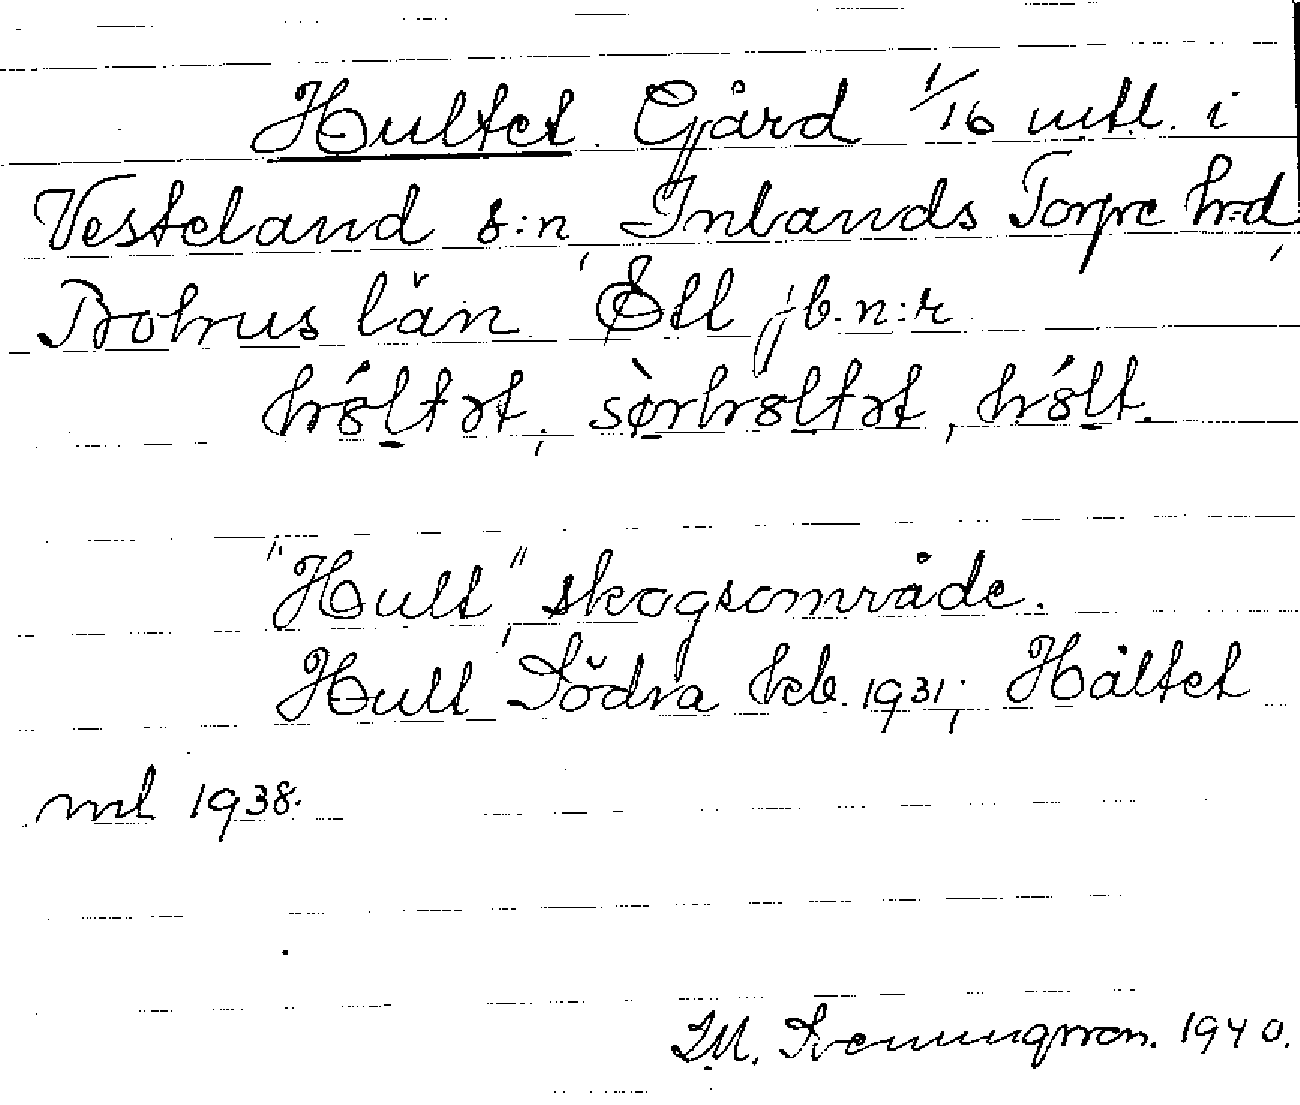 Hultet Gård 1/16 mtl. i
Vesteland s:n, Inlands Torpe h:d,
Bohus län Ett jb.n:r
hóltət, sø̀rhòltət, hólt.
"Hult", skogsområde.
Hult Södra kb. 1931; Håltet
ml 1938.
M. Svenungsson. 1940.